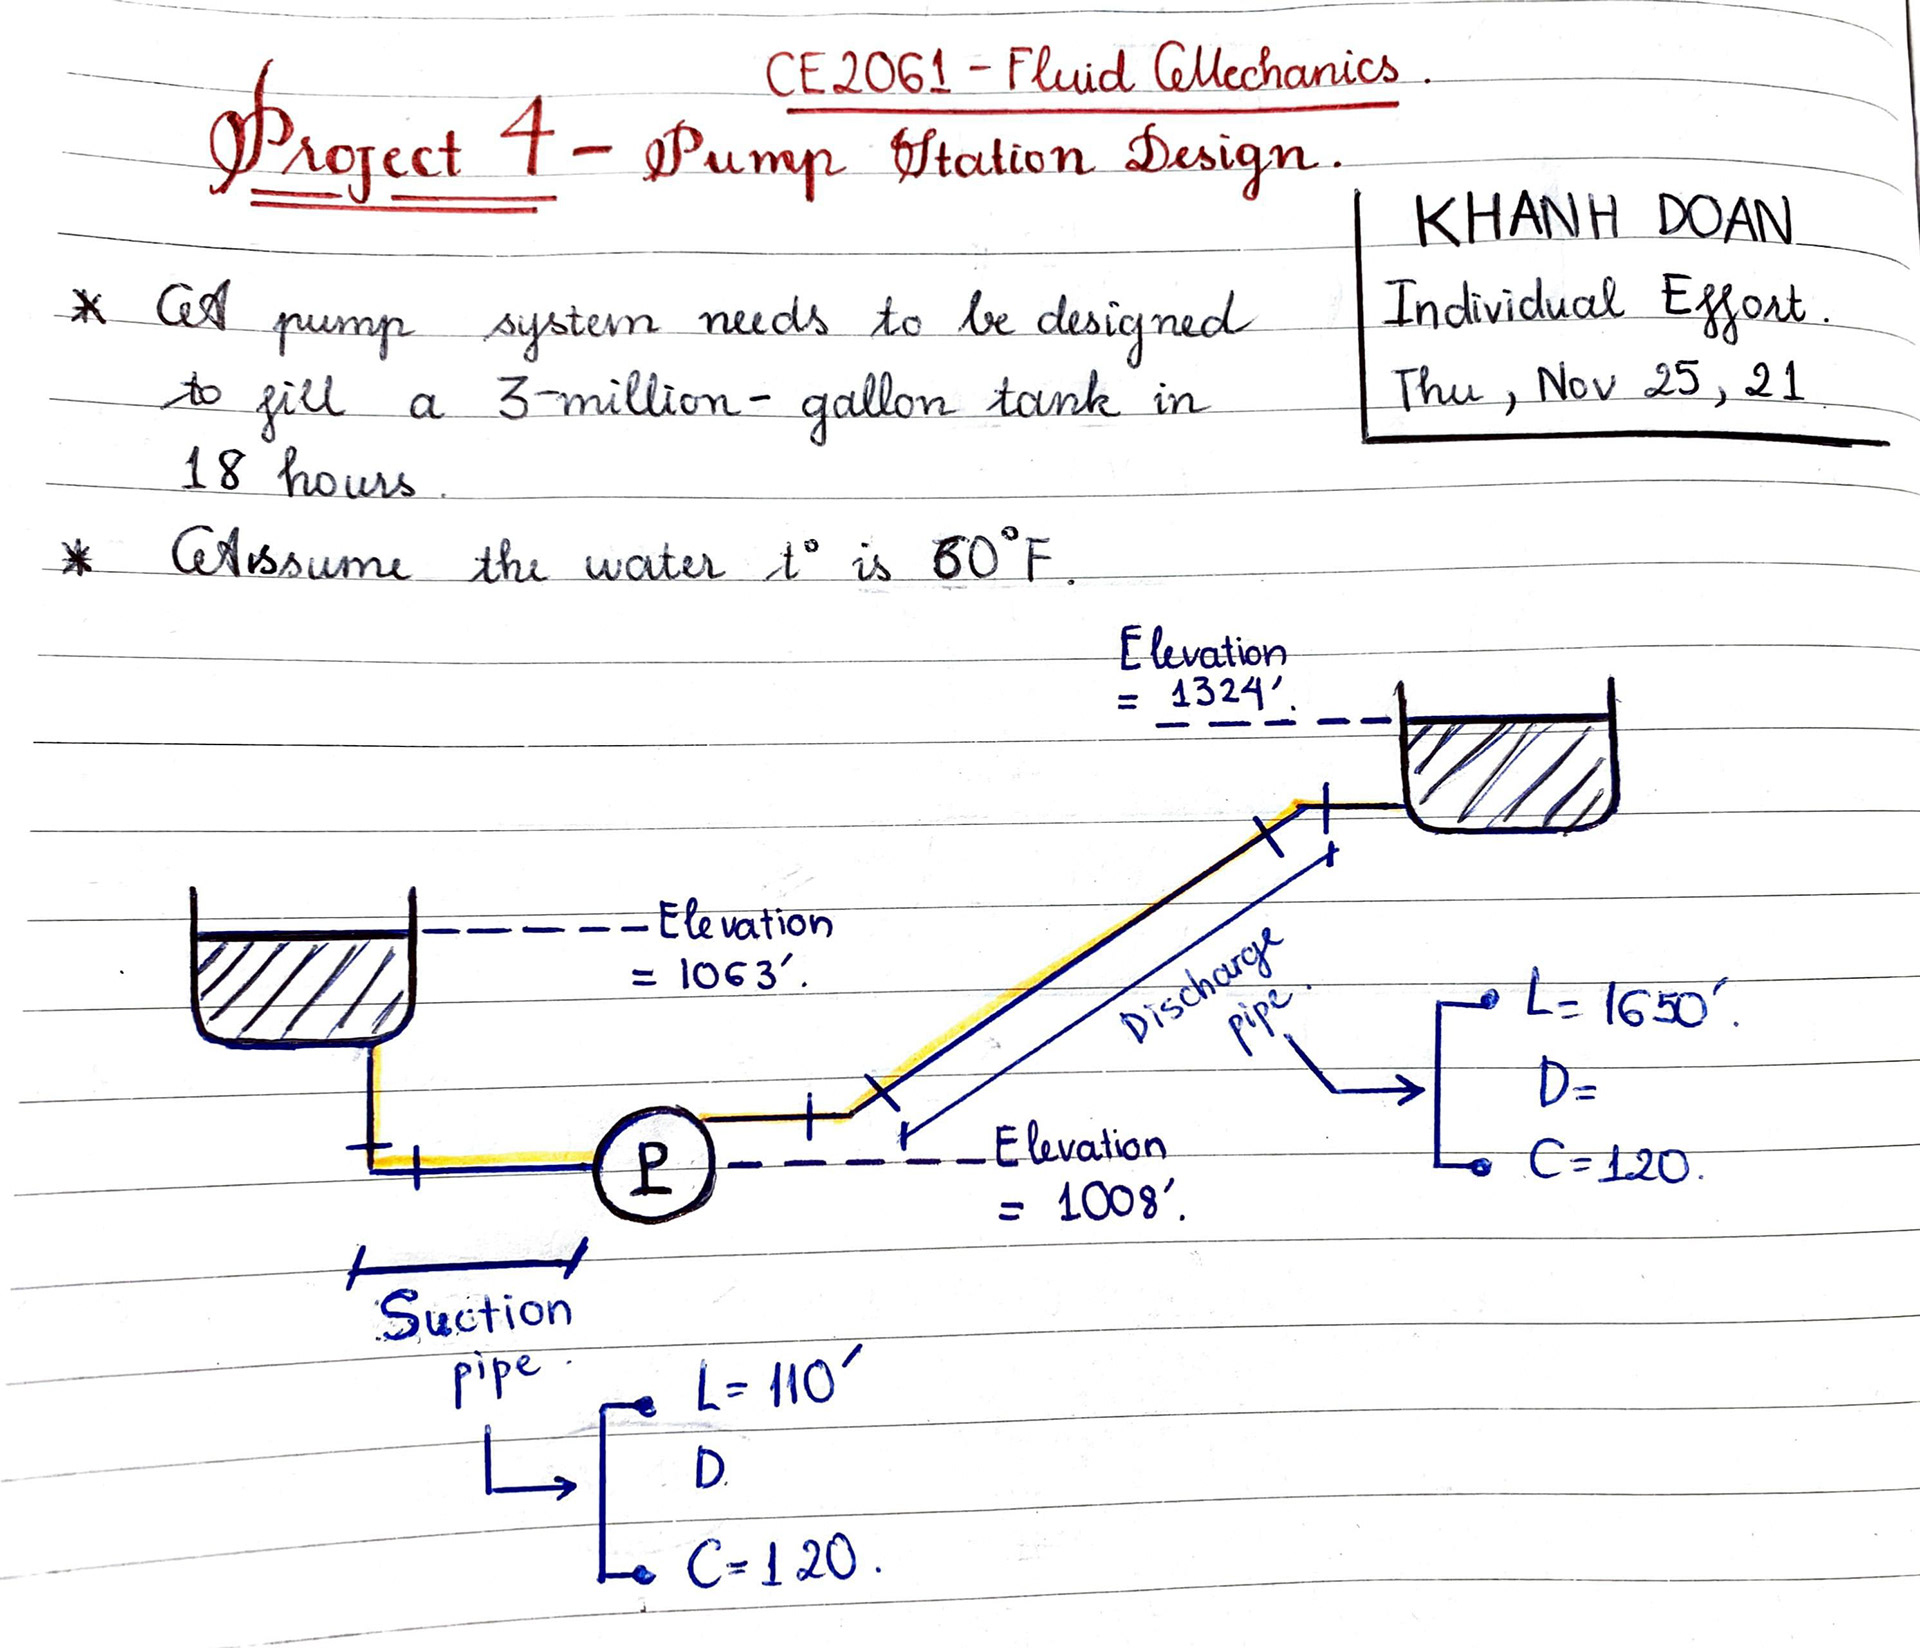 CE2061 - Fluid Mechanics.
Project 4 - Pump Station Design.
KHANH DOAN
Individual Effort.
Thu, Nov 25, 21
* A pump system needs to be designed
to fill a 3-million-gallon tank in
18 hours.
* Assume the water t° is 60°F.
Elevation
= 1324'.
Elevation
= 1063'.
Discharge
pipe.
L= 1650'.
D=
C=120.
P
Elevation
= 1008'.
Suction
pipe.
L= 110'
D.
C=120.